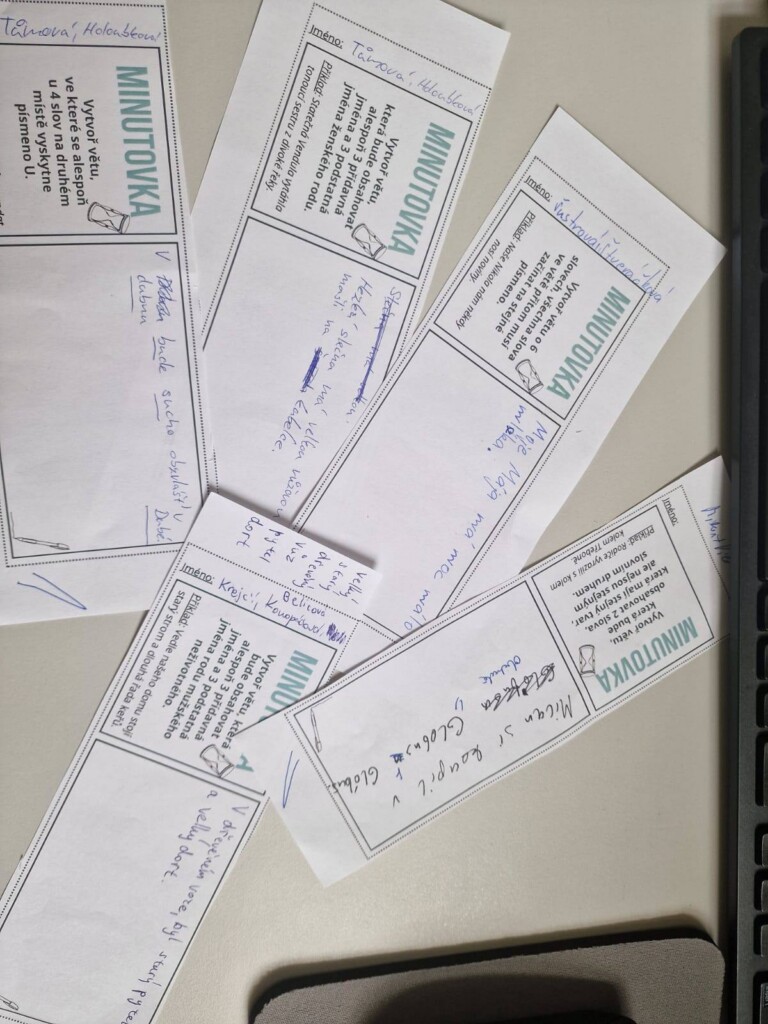 Tůmová, Holoubková
MINUTOVKA
Vytvoř větu,
ve které se alespoň
u 4 slov na druhém
místě vyskytne
písmeno U.
V
dubnu bude sucho obzvlášť v
Dubé.
Jméno: Tůmová, Holoubková
MINUTOVKA
Vytvoř větu,
která bude obsahovat
alespoň 3 přídavná
jména a 3 podstatná
jména ženského rodu.
Příklad: Statečná Vendula vytáhla
tonoucí sestru z divoké řeky.
Hezká slečna má velkou růžovou
mašli na kabelce.
Jméno:
MINUTOVKA
Vytvoř větu o 6
slovech, všechna slova
ve větě přitom musí
začínat na stejné
písmeno.
Příklad: Naše Nikola nám někdy
nosí noviny.
Moje Mája má moc málo
mléka.
Jméno:
MINUTOVKA
Vytvoř větu,
která bude
obsahovat 2 slova,
která mají stejný tvar,
ale nejsou stejným
slovním druhem.
Příklad: Rodiče vyrazili s kolem
kolem Třeboně.
Milan si koupil v
Globus v Glóbus.
velký
starý
dřevěný
vůz
pytel
dort
Jméno: Krejčí, Konopásová, Belicová
MINU
Vytvoř větu, která
bude obsahovat
alespoň 3 přídavná
jména a 3 podstatná
jména rodu mužského
neživotného.
Příklad: Vedle našeho domu stojí
starý strom a dlouhá řada keřů.
V dřevěném voze, byl starý pytel
a velký dort.